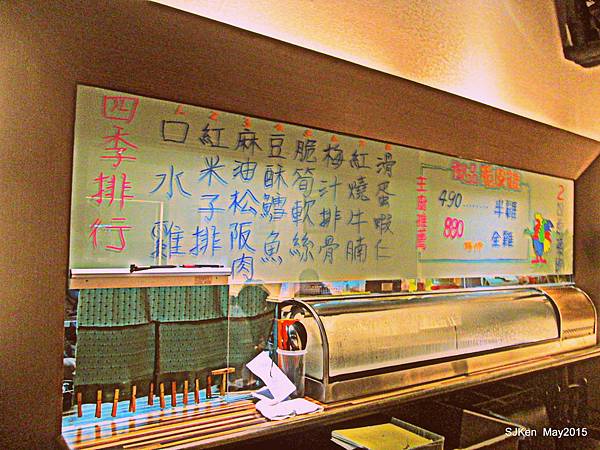 四季排行
1
口水雞
2
紅米子排
3
麻油松阪肉
4
豆酥鱈魚
5
脆筍軟絲
6
梅汁排骨
7
紅燒牛腩
8
滑蛋蝦仁
主廚推薦
490......... 半雞
890
全雞
2
SJKen May2015